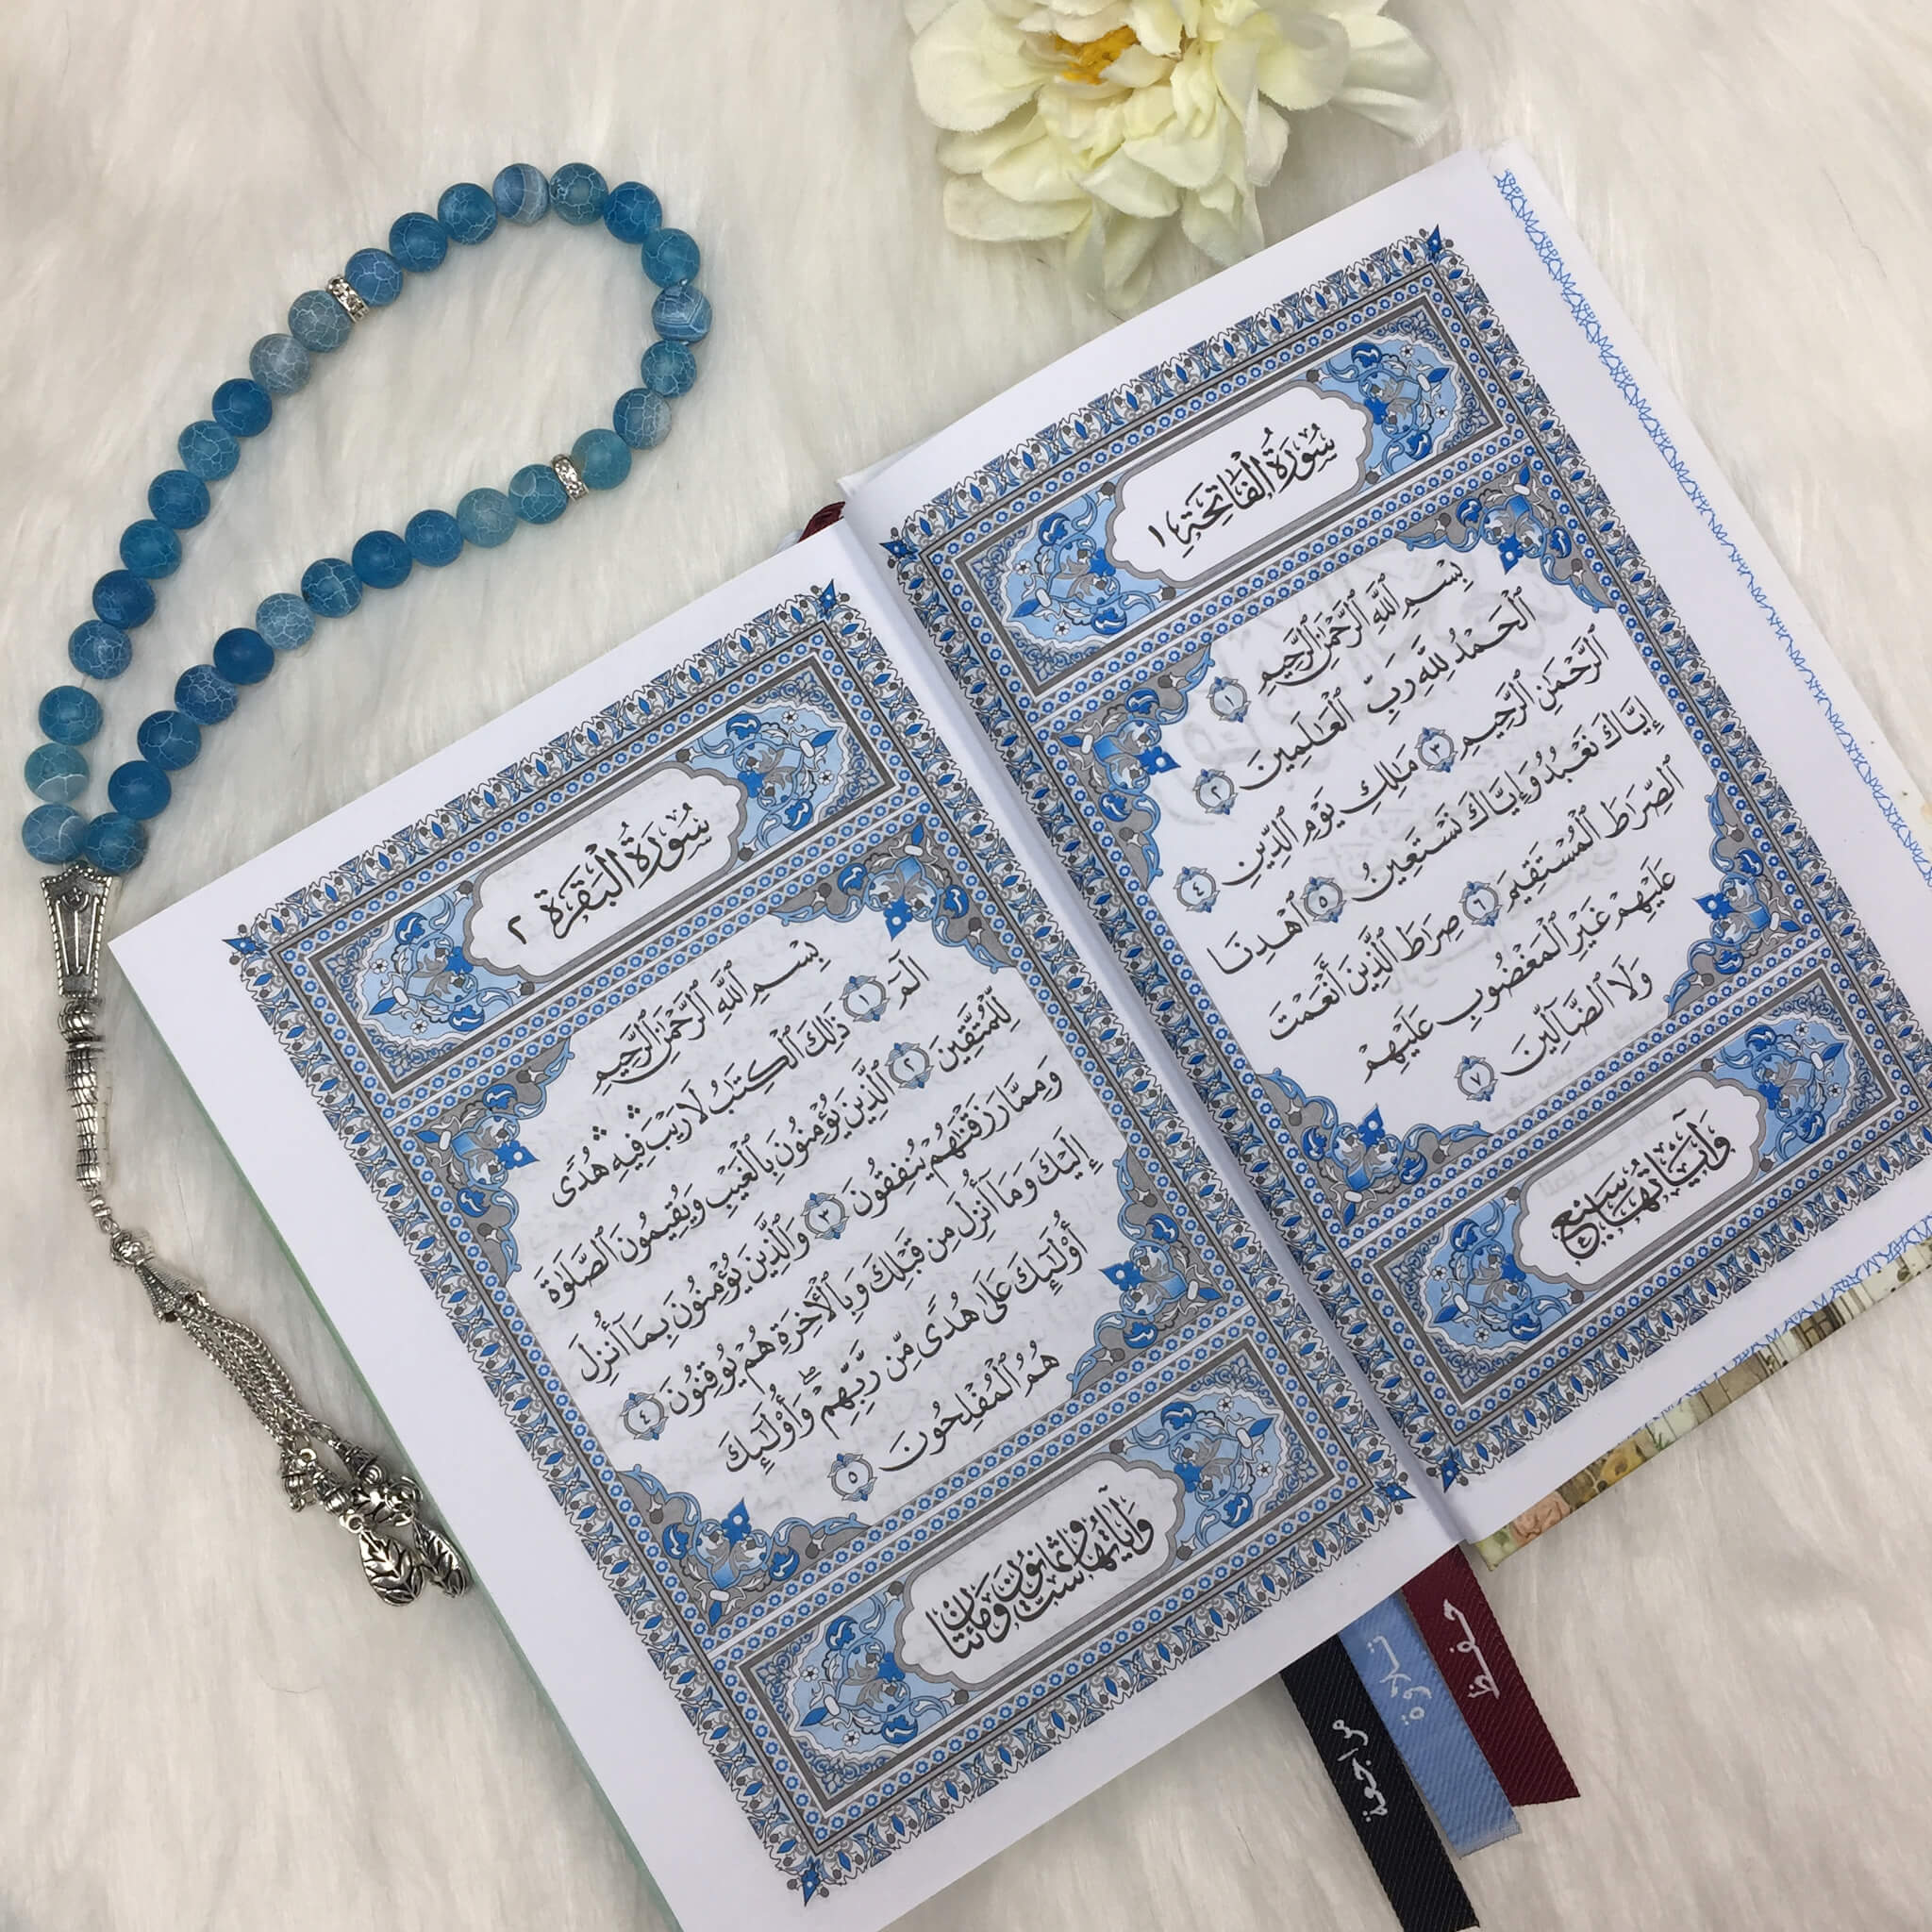 سُورَةُ الْفَاتِحَةِ ١
بِسْمِ ٱللَّهِ ٱلرَّحْمَٰنِ ٱلرَّحِيمِ ١
ٱلْحَمْدُ لِلَّهِ رَبِّ ٱلْعَٰلَمِينَ ٢
ٱلرَّحْمَٰنِ ٱلرَّحِيمِ ٣ مَٰلِكِ يَوْمِ ٱلدِّينِ ٤
إِيَّاكَ نَعْبُدُ وَإِيَّاكَ نَسْتَعِينُ ٥ ٱهْدِنَا
ٱلصِّرَٰطَ ٱلْمُسْتَقِيمَ ٦ صِرَٰطَ ٱلَّذِينَ أَنْعَمْتَ
عَلَيْهِمْ غَيْرِ ٱلْمَغْضُوبِ عَلَيْهِمْ
وَلَا ٱلضَّآلِّينَ ٧
وَآيَاتُهَا سَبْعٌ
سُورَةُ الْبَقَرَةِ ٢
بِسْمِ ٱللَّهِ ٱلرَّحْمَٰنِ ٱلرَّحِيمِ
الٓمٓ ١ ذَٰلِكَ ٱلْكِتَٰبُ لَا رَيْبَ ۛ فِيهِ ۛ هُدًى
لِّلْمُتَّقِينَ ٢ ٱلَّذِينَ يُؤْمِنُونَ بِٱلْغَيْبِ وَيُقِيمُونَ ٱلصَّلَوٰةَ
وَمِمَّا رَزَقْنَٰهُمْ يُنفِقُونَ ٣ وَٱلَّذِينَ يُؤْمِنُونَ بِمَآ أُنزِلَ
إِلَيْكَ وَمَآ أُنزِلَ مِن قَبْلِكَ وَبِٱلْأَخِرَةِ هُمْ يُوقِنُونَ ٤
أُو۟لَٰٓئِكَ عَلَىٰ هُدًى مِّن رَّبِّهِمْ ۖ وَأُو۟لَٰٓئِكَ
هُمُ ٱلْمُفْلِحُونَ ٥
وَآيَاتُهَا سِتٌّ وَثَمَانُونَ وَمِائَتَانِ
حفظ
تلاوة
مراجعة